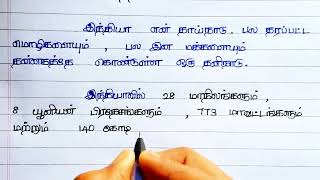 இந்தியா என் தாய்நாடு. பல தரப்பட்ட
மொழிகளையும் , பல இன மக்களையும்
தன்னகத்தே கொண்டுள்ள ஒரு தனிநாடு.
இந்தியாவில் 28 மாநிலங்களும் ,
8 யூனியன் பிரதேசங்களும் , 773 மாவட்டங்களும்
மற்றும் 140 கோடி